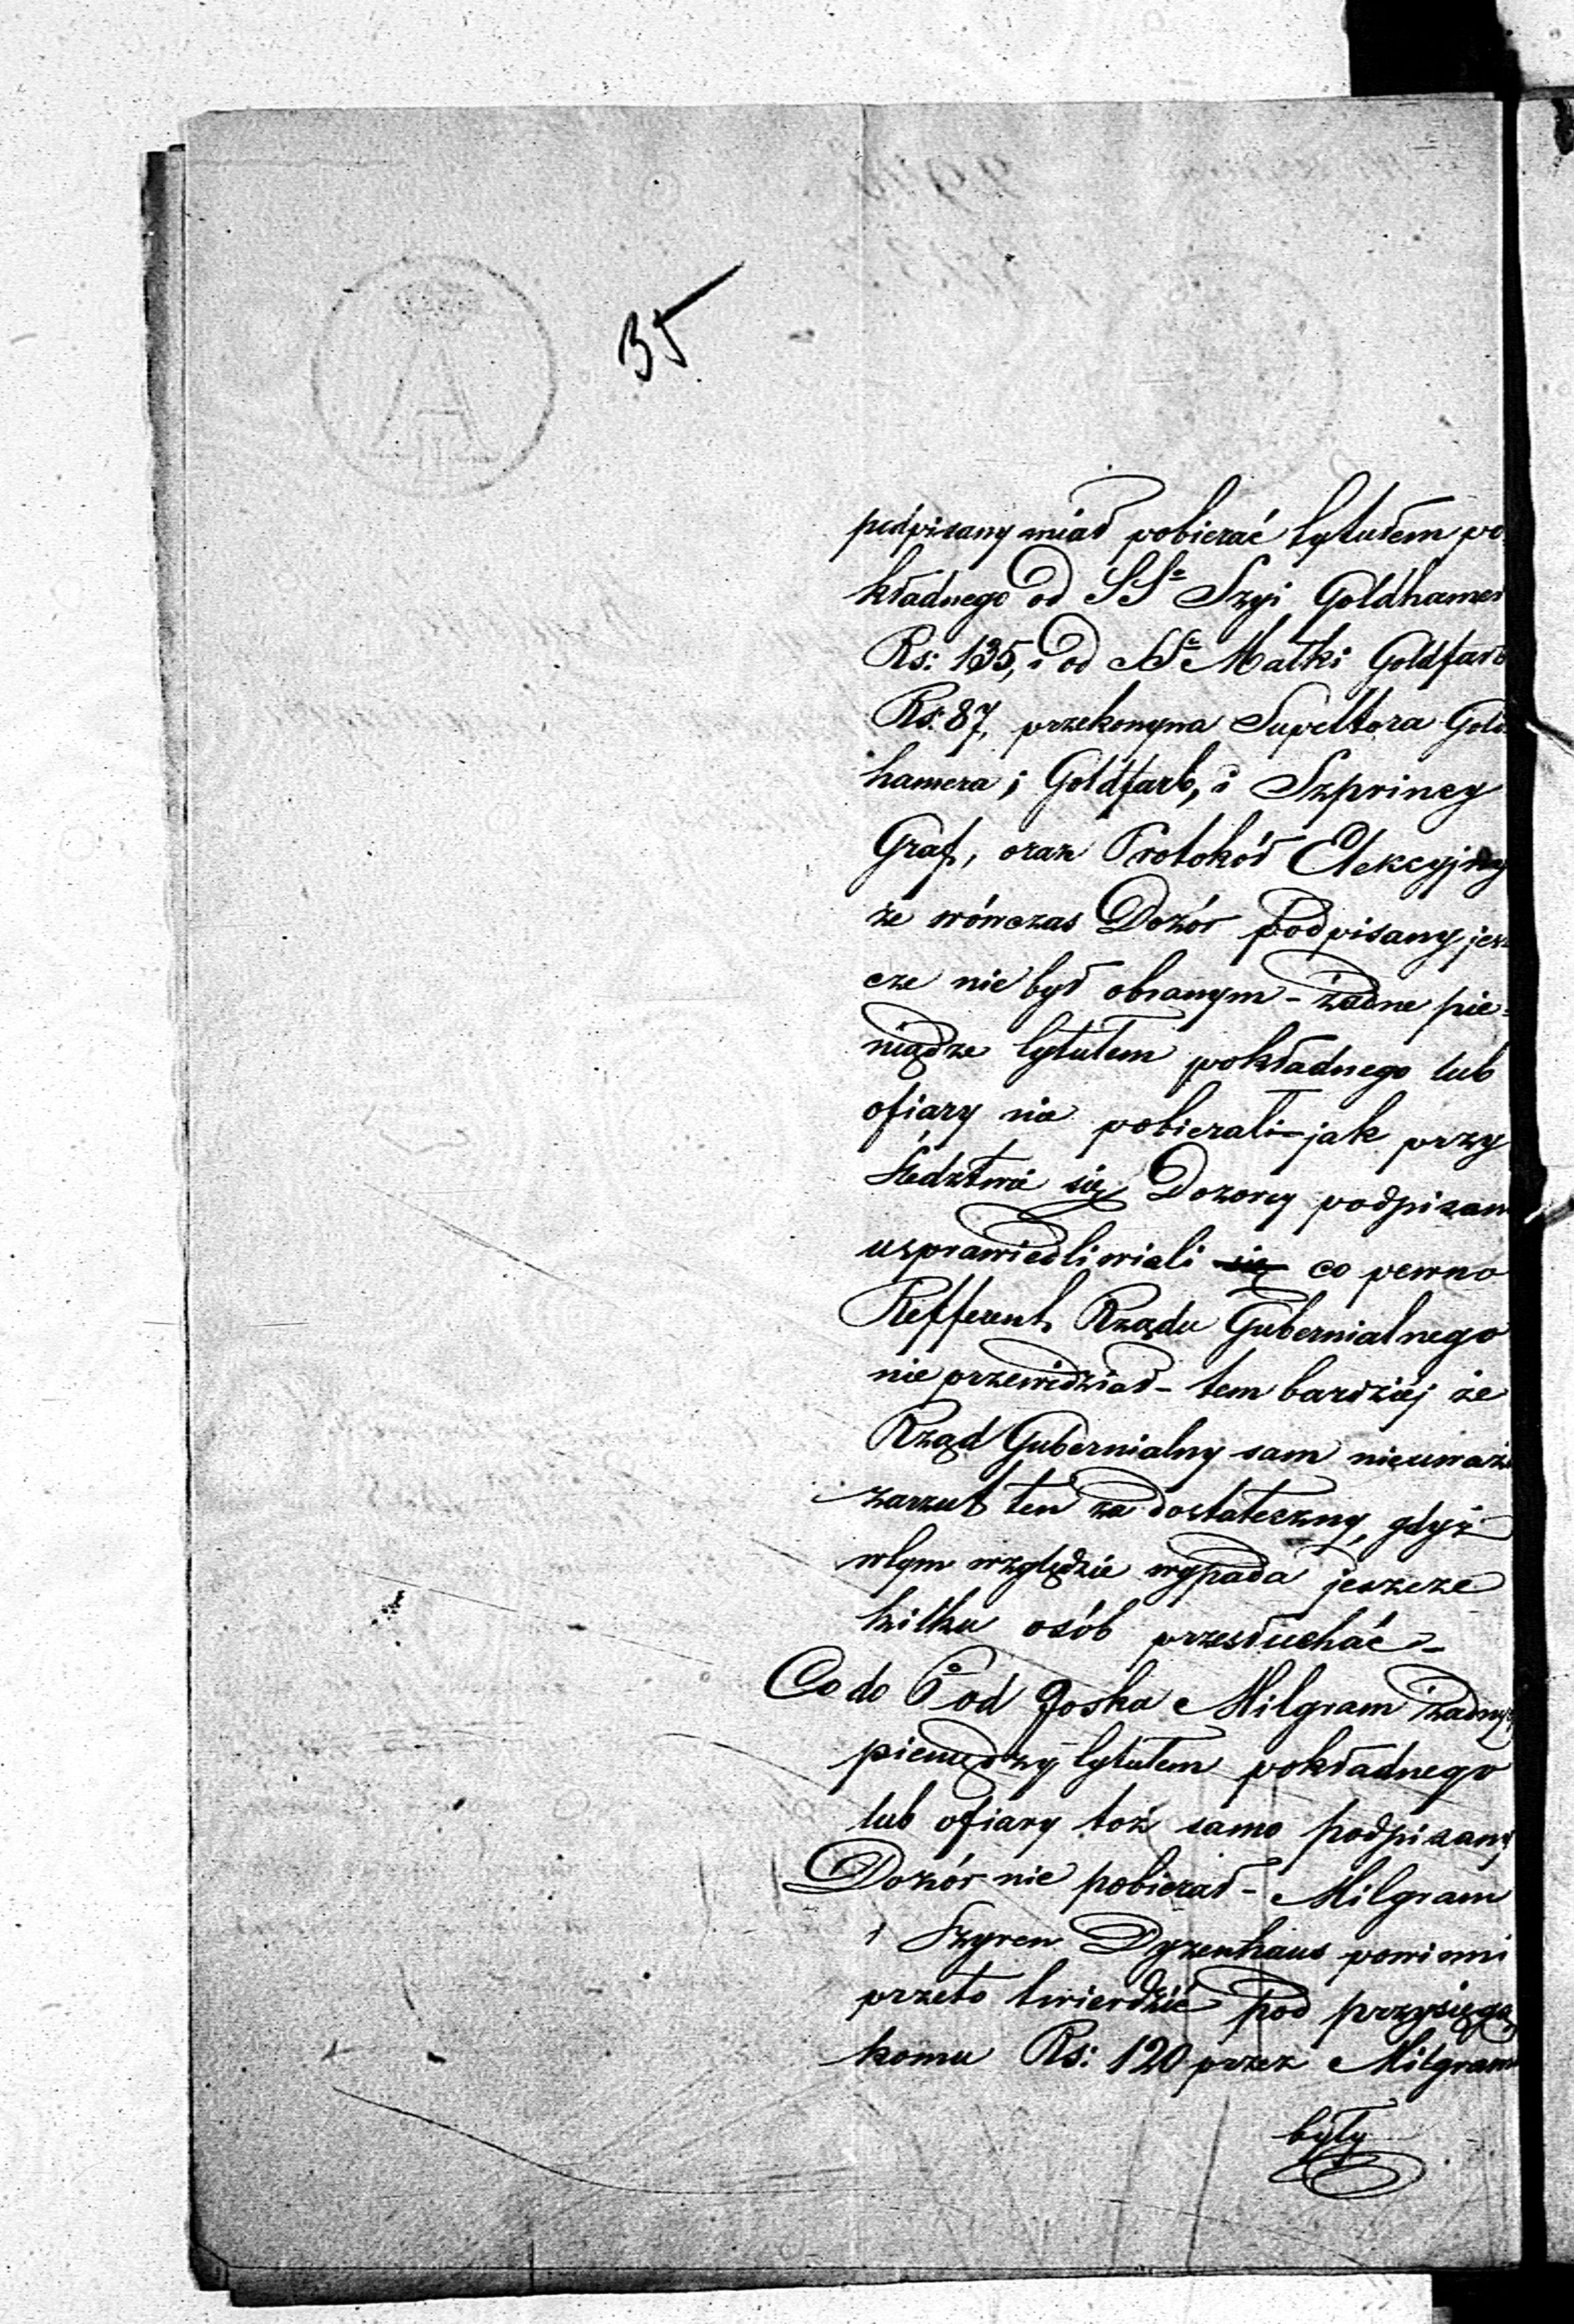 35
podpisany miał pobierać tytułem po
kładnego od SSów Szyi Goldhamer
Rs: 135, i od SSów Matki Goldfarb
Rs: 87, przekonywa Supeltora Gold
hamera i Goldfarb, i Szprincy
Graf, oraz Protokół Elekcyjny
że wówczas Dozór podpisany jesz
cze nie był obranym - żadne pie=
niądze tytułem pokładnego lub
ofiary nie pobierali - jak przy
Śledztwie się Dozorcy podpisani
usprawiedliwiali się co pewno
Refferent Rządu Gubernialnego
nie przewidział - tem bardziej że
Rząd Gubernialny sam nieuważa
zarzut ten za dostateczny, gdyż
wtym względzie wypada jeszcze
kilku osób przesłuchać -
Co do i od Joska Milgram żadnych
pieniędzy tytułem pokładnego
lub ofiary toż samo podpisany
Dozór nie pobierał - Milgram
i Szyren Dyzenhaus powinni
przeto twierdzić pod przysięgą
komu Rs: 120 przez Milgrama
były